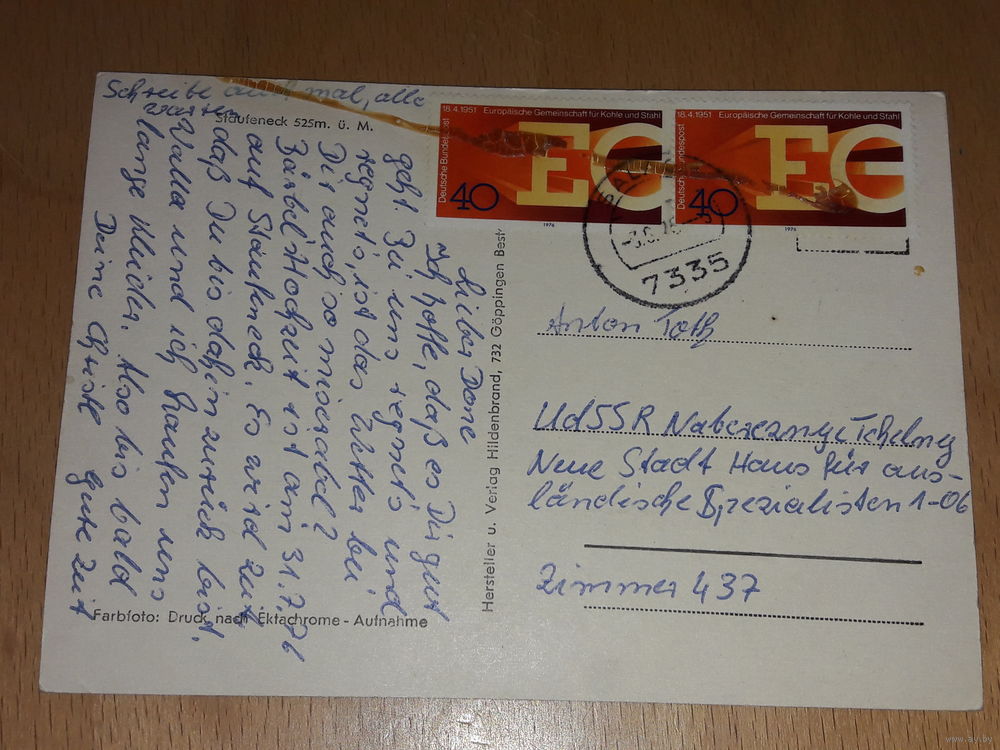 Schreibe auch mal, alle
warten
Staufeneck 525m. ü. M.
Lieber Done
Ich hoffe, daß es Dir gut
geht. Bei uns regnets und
regnets, ist das Wetter bei
Dir auch so miserabel?
Bärbel's Hochzeit ist am 31.7.76
auf Staufeneck. Es wird Zeit
daß Du bis dahin zurück bist.
Walla und ich kaufen uns
lange Kleider. Also bis bald
Deine Christl gute Zeit
Farbfoto: Druck nach Ektachrome - Aufnahme
Hersteller u. Verlag Hildenbrand, 732 Göppingen Best
18.4.1951 Europäische Gemeinschaft für Kohle und Stahl
Deutsche Bundespost
EG
40
1976
18.4.1951 Europäische Gemeinschaft für Kohle und Stahl
Deutsche Bundespost
EG
40
1976
7335
Anton Toth
UdSSR Nabereznyje Tchelny
Neue Stadt Haus für aus-
ländische Spezialisten 1-06
Zimmer 437
www.ay.by